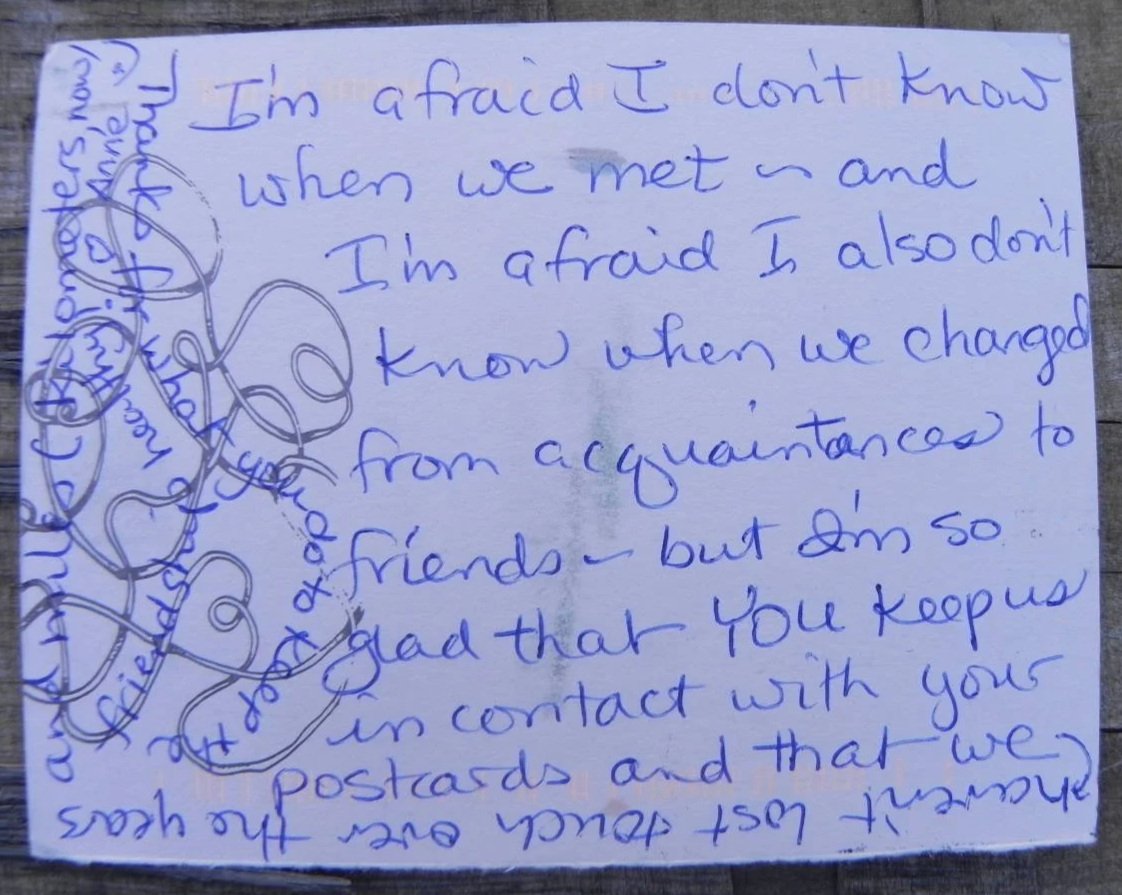 I'm afraid I don't know
when we met ~ and
I'm afraid I also don't
know when we changed
from acquaintances to
friends ~ but I'm so
glad that YOU keep us
in contact with your
postcards and that we
haven't lost touch over the years
and miles (kilometers, now)
Thanks for what do to keep the
friendship alive healthy!
Annie :)